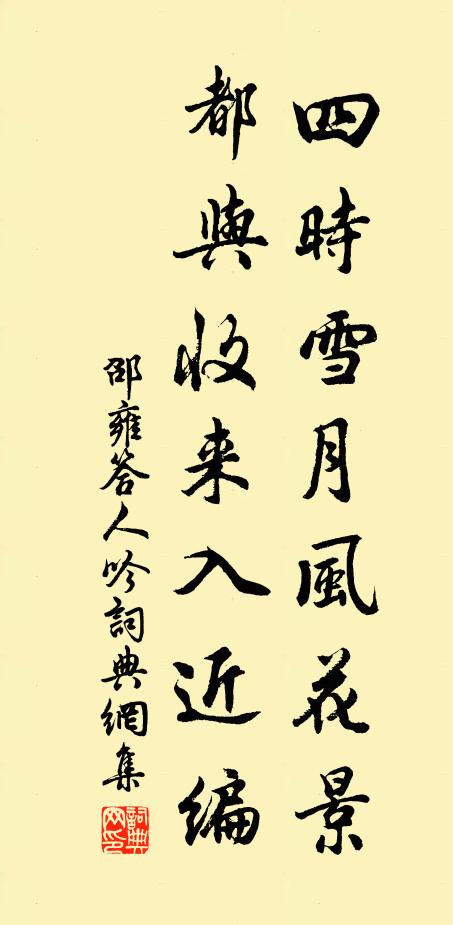 四時雪月風花景
都與收来入近編
邵雍答人吟詞典網集
詞典網印